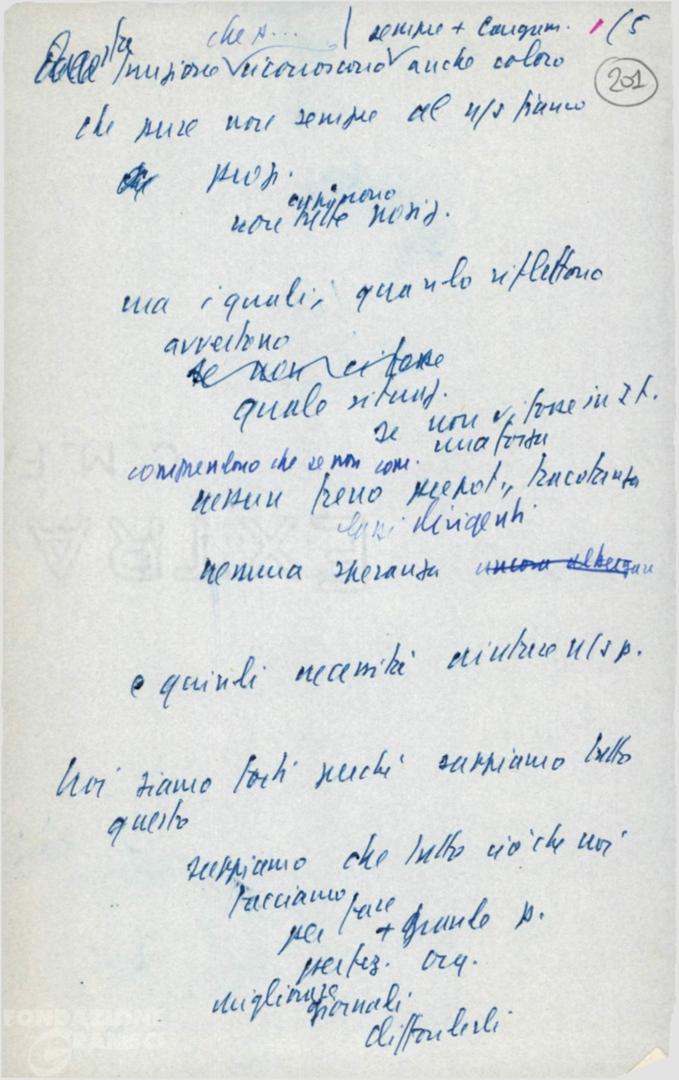 che p... | sempre + congiun. 1/5
Questa funzione riconoscono anche coloro
201
che pure non sempre al n/s fianco
pros.
condividono
non nelle posiz.
ma i quali, quando riflettono
avvertono
se non ci fosse
quale situaz.
se non vi fosse in It.
una forza
comprendono che se non com.
nessun freno prepot., tracotanza
classi dirigenti
nessuna speranza ancora
e quindi necessità aiutare n/s p.
Noi siamo forti perché sappiamo tutto
questo
sappiamo che tutto ciò che noi
facciamo
per fare + grande p.
perfez. org.
migliorare giornali
diffonderli
FONDAZIONE
GRAMSCI